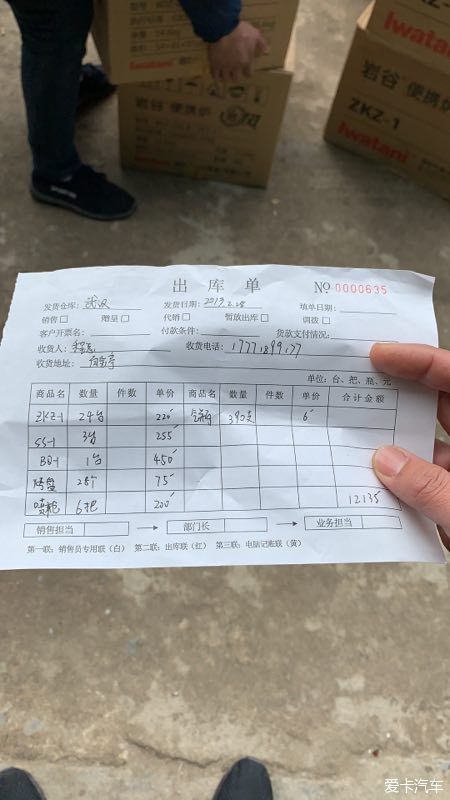 Iwatani
岩谷 便携炉
ZKZ-1
Iwatani
岩谷 便携炉
Iwatani
出库单 № 0000635
发货仓库: 武汉 发货日期: 2019.2.28 填单日期:
销售□ 赠呈□ 代销□ 暂放出库□ 调拨□
客户开票名: 付款条件: 货款支付情况:
收货人: 收货电话:
收货地址:
单位: 台、把、瓶、元
商品名 数量 件数 单价 商品名 数量 件数 单价 合计金额
ZKZ-1 24台 220 390支 6
SS-1 3台 255
BQ-1 1台 450
烤盘 28个 75
喷枪 6把 200 12135
销售担当 → 部门长 → 业务担当
第一联: 销售员专用联(白) 第二联: 出库联(红) 第三联: 电脑记账联(黄)
爱卡汽车